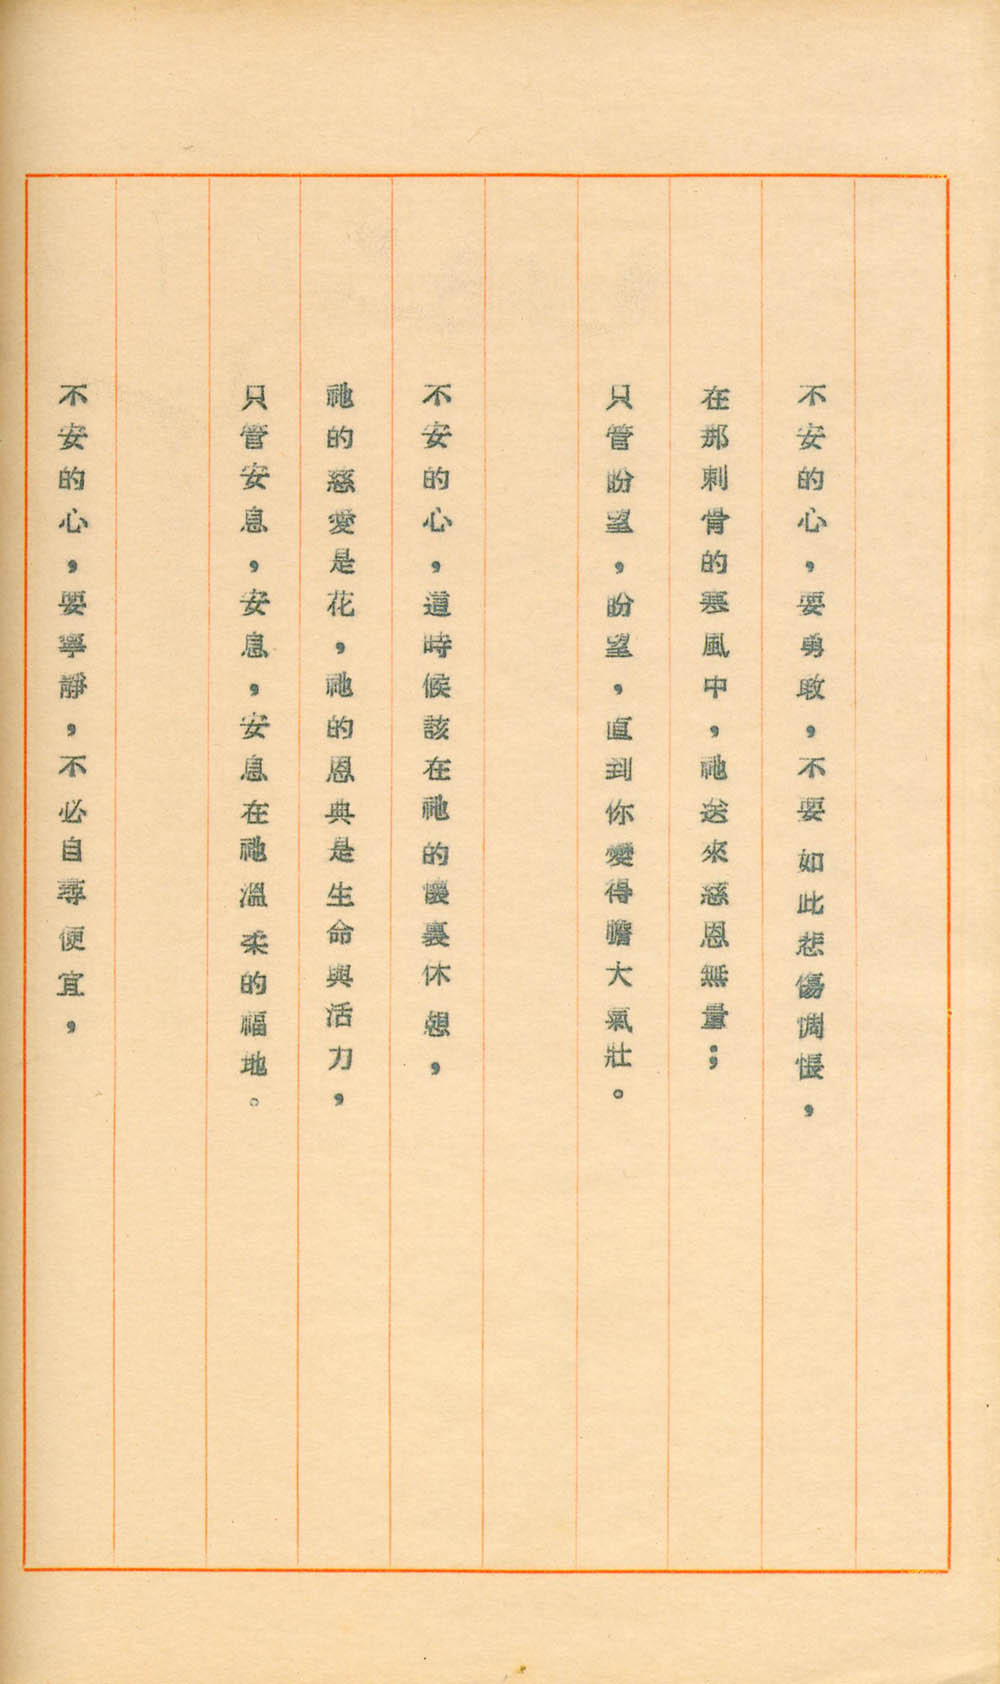 不安的心,要勇敢,不要如此悲傷惆悵,
在那刺骨的寒風中,祂送來慈恩無量;
只管盼望,盼望,直到你變得膽大氣壯。
不安的心,這時候該在祂的懷裏休憩,
祂的慈愛是花,祂的恩典是生命與活力,
只管安息,安息,安息在祂溫柔的福地。
不安的心,要寧靜,不必自尋便宜,